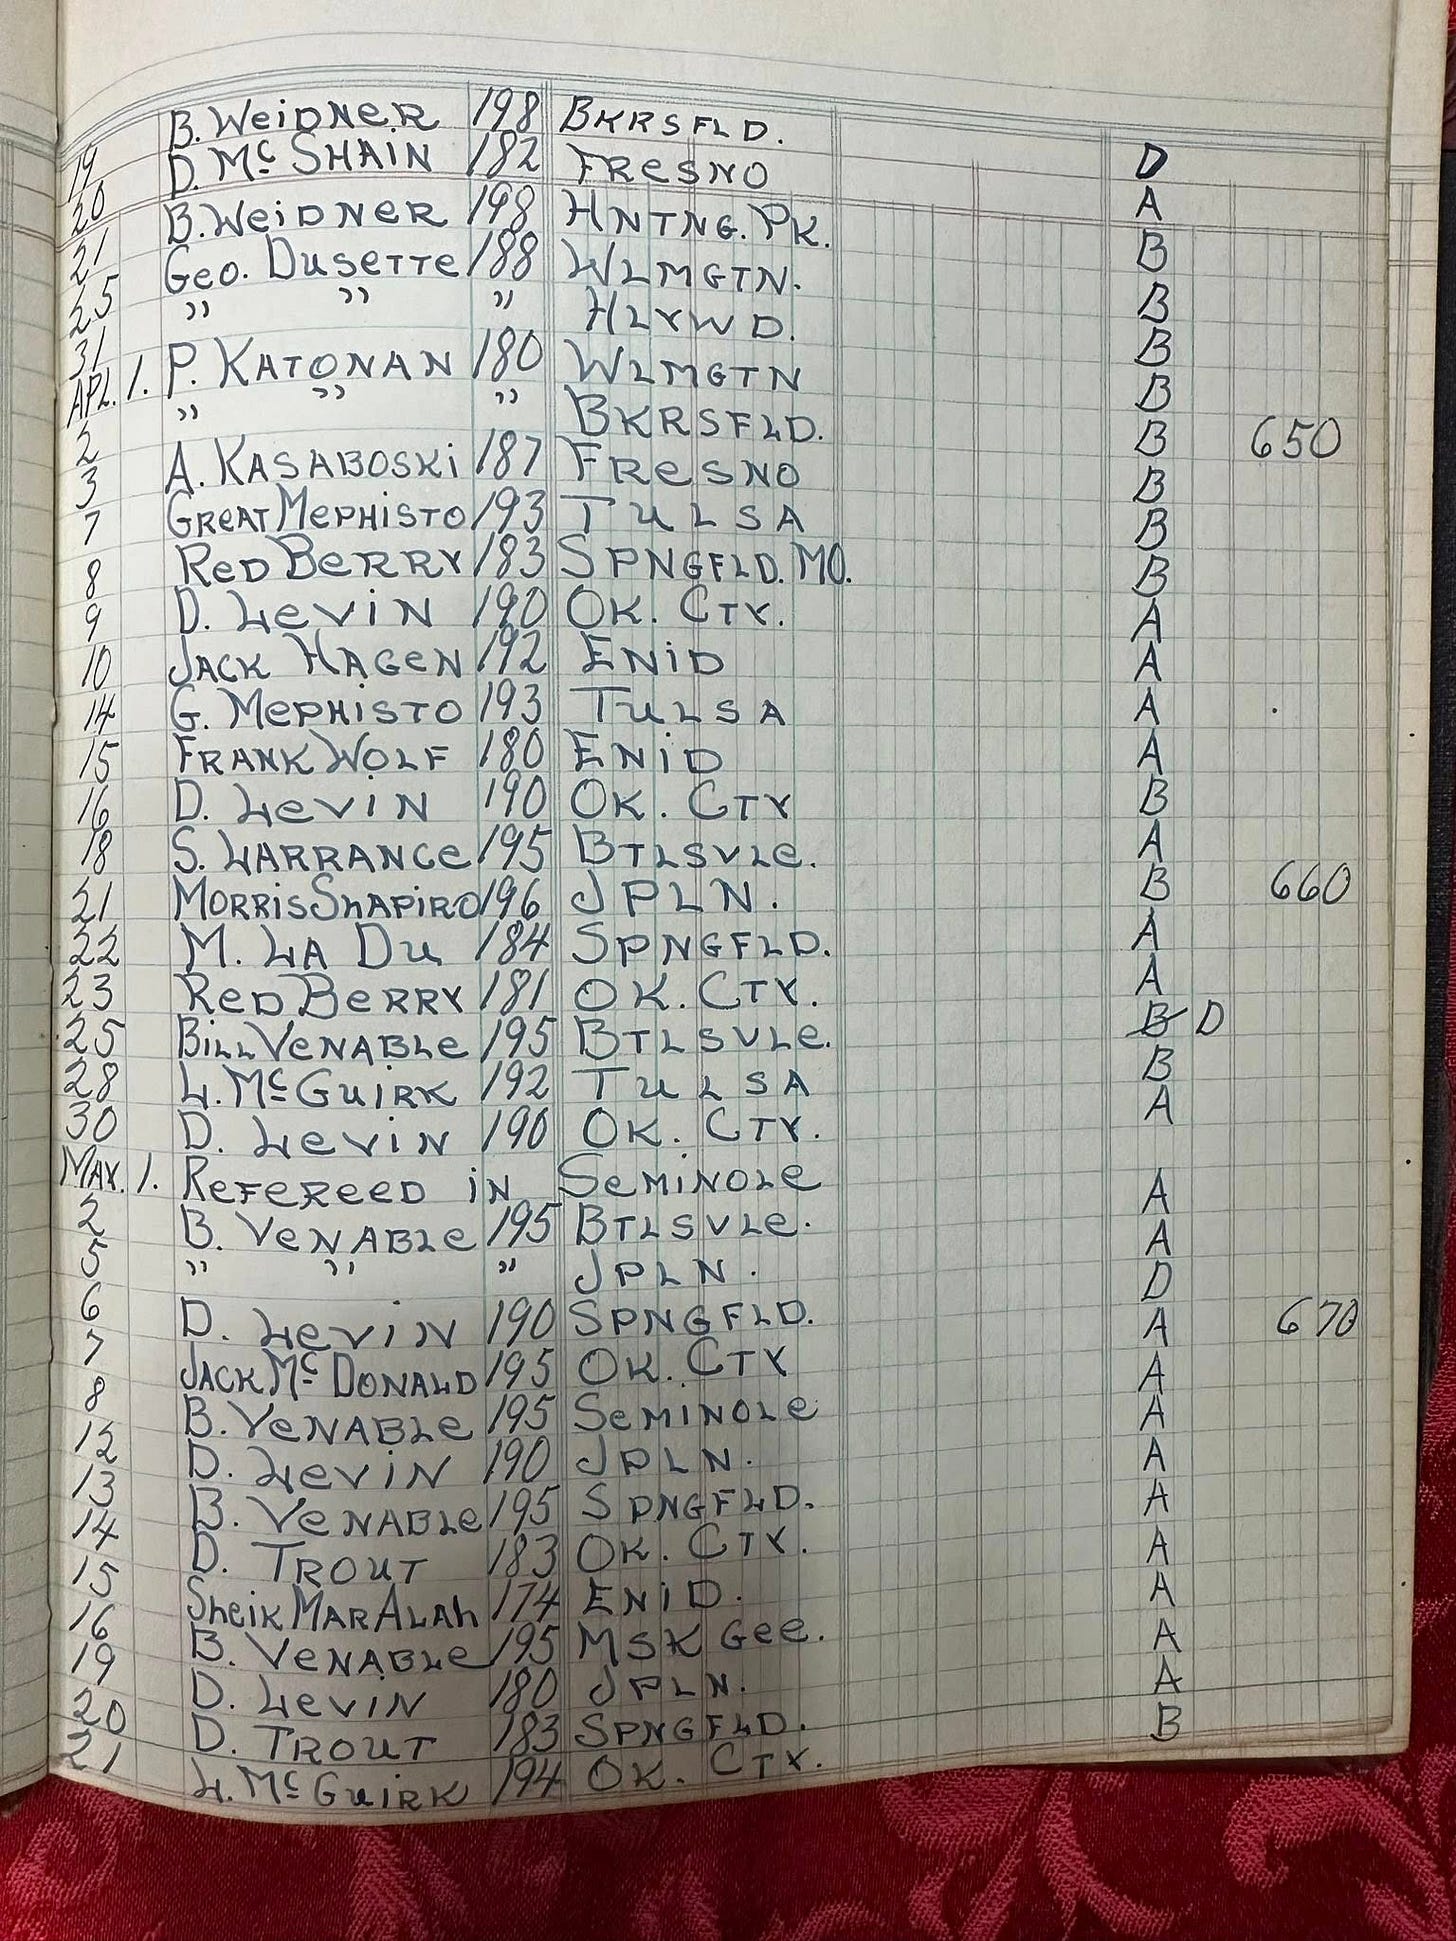 19 B. WEIDNER 198 BKRSFLD. D
20 D. McSHAIN 182 FRESNO A
21 B. WEIDNER 198 HNTNG. PK. B
25 GEO. DUSETTE 188 WLMGTN. B
31 " " " HLYWD. B
APL. 1. P. KATONAN 180 WLMGTN B
2 " " " BKRSFLD. B 650
3 A. KASABOSKI 187 FRESNO B
7 GREAT MEPHISTO 193 TULSA B
8 RED BERRY 183 SPNGFLD. MO. B
9 D. LEVIN 190 OK. CTY. A
10 JACK HAGEN 192 ENID A
14 G. MEPHISTO 193 TULSA A
15 FRANK WOLF 180 ENID A
16 D. LEVIN 190 OK. CTY B
18 S. LARRANCE 195 BTLSVLE. A
21 MORRIS SHAPIRO 196 JPLN. B 660
22 M. LA DU 184 SPNGFLD. A
23 RED BERRY 181 OK. CTY. A
25 BILL VENABLE 195 BTLSVLE. B D
28 L. McGUIRK 192 TULSA B
30 D. LEVIN 190 OK. CTY. A
MAY. 1. REFEREED IN SEMINOLE
2 B. VENABLE 195 BTLSVLE. A
5 " " " JPLN. A
6 D. LEVIN 190 SPNGFLD. D
7 JACK McDONALD 195 OK. CTY A 670
8 B. VENABLE 195 SEMINOLE A
12 D. LEVIN 190 JPLN. A
13 B. VENABLE 195 SPNGFLD. A
14 D. TROUT 183 OK. CTY. A
15 SHEIK MAR ALAH 174 ENID. A
16 B. VENABLE 195 MSKGEE. A
19 D. LEVIN 180 JPLN. A
20 D. TROUT 183 SPNGFLD. A
21 L. McGUIRK 194 OK. CTY. B